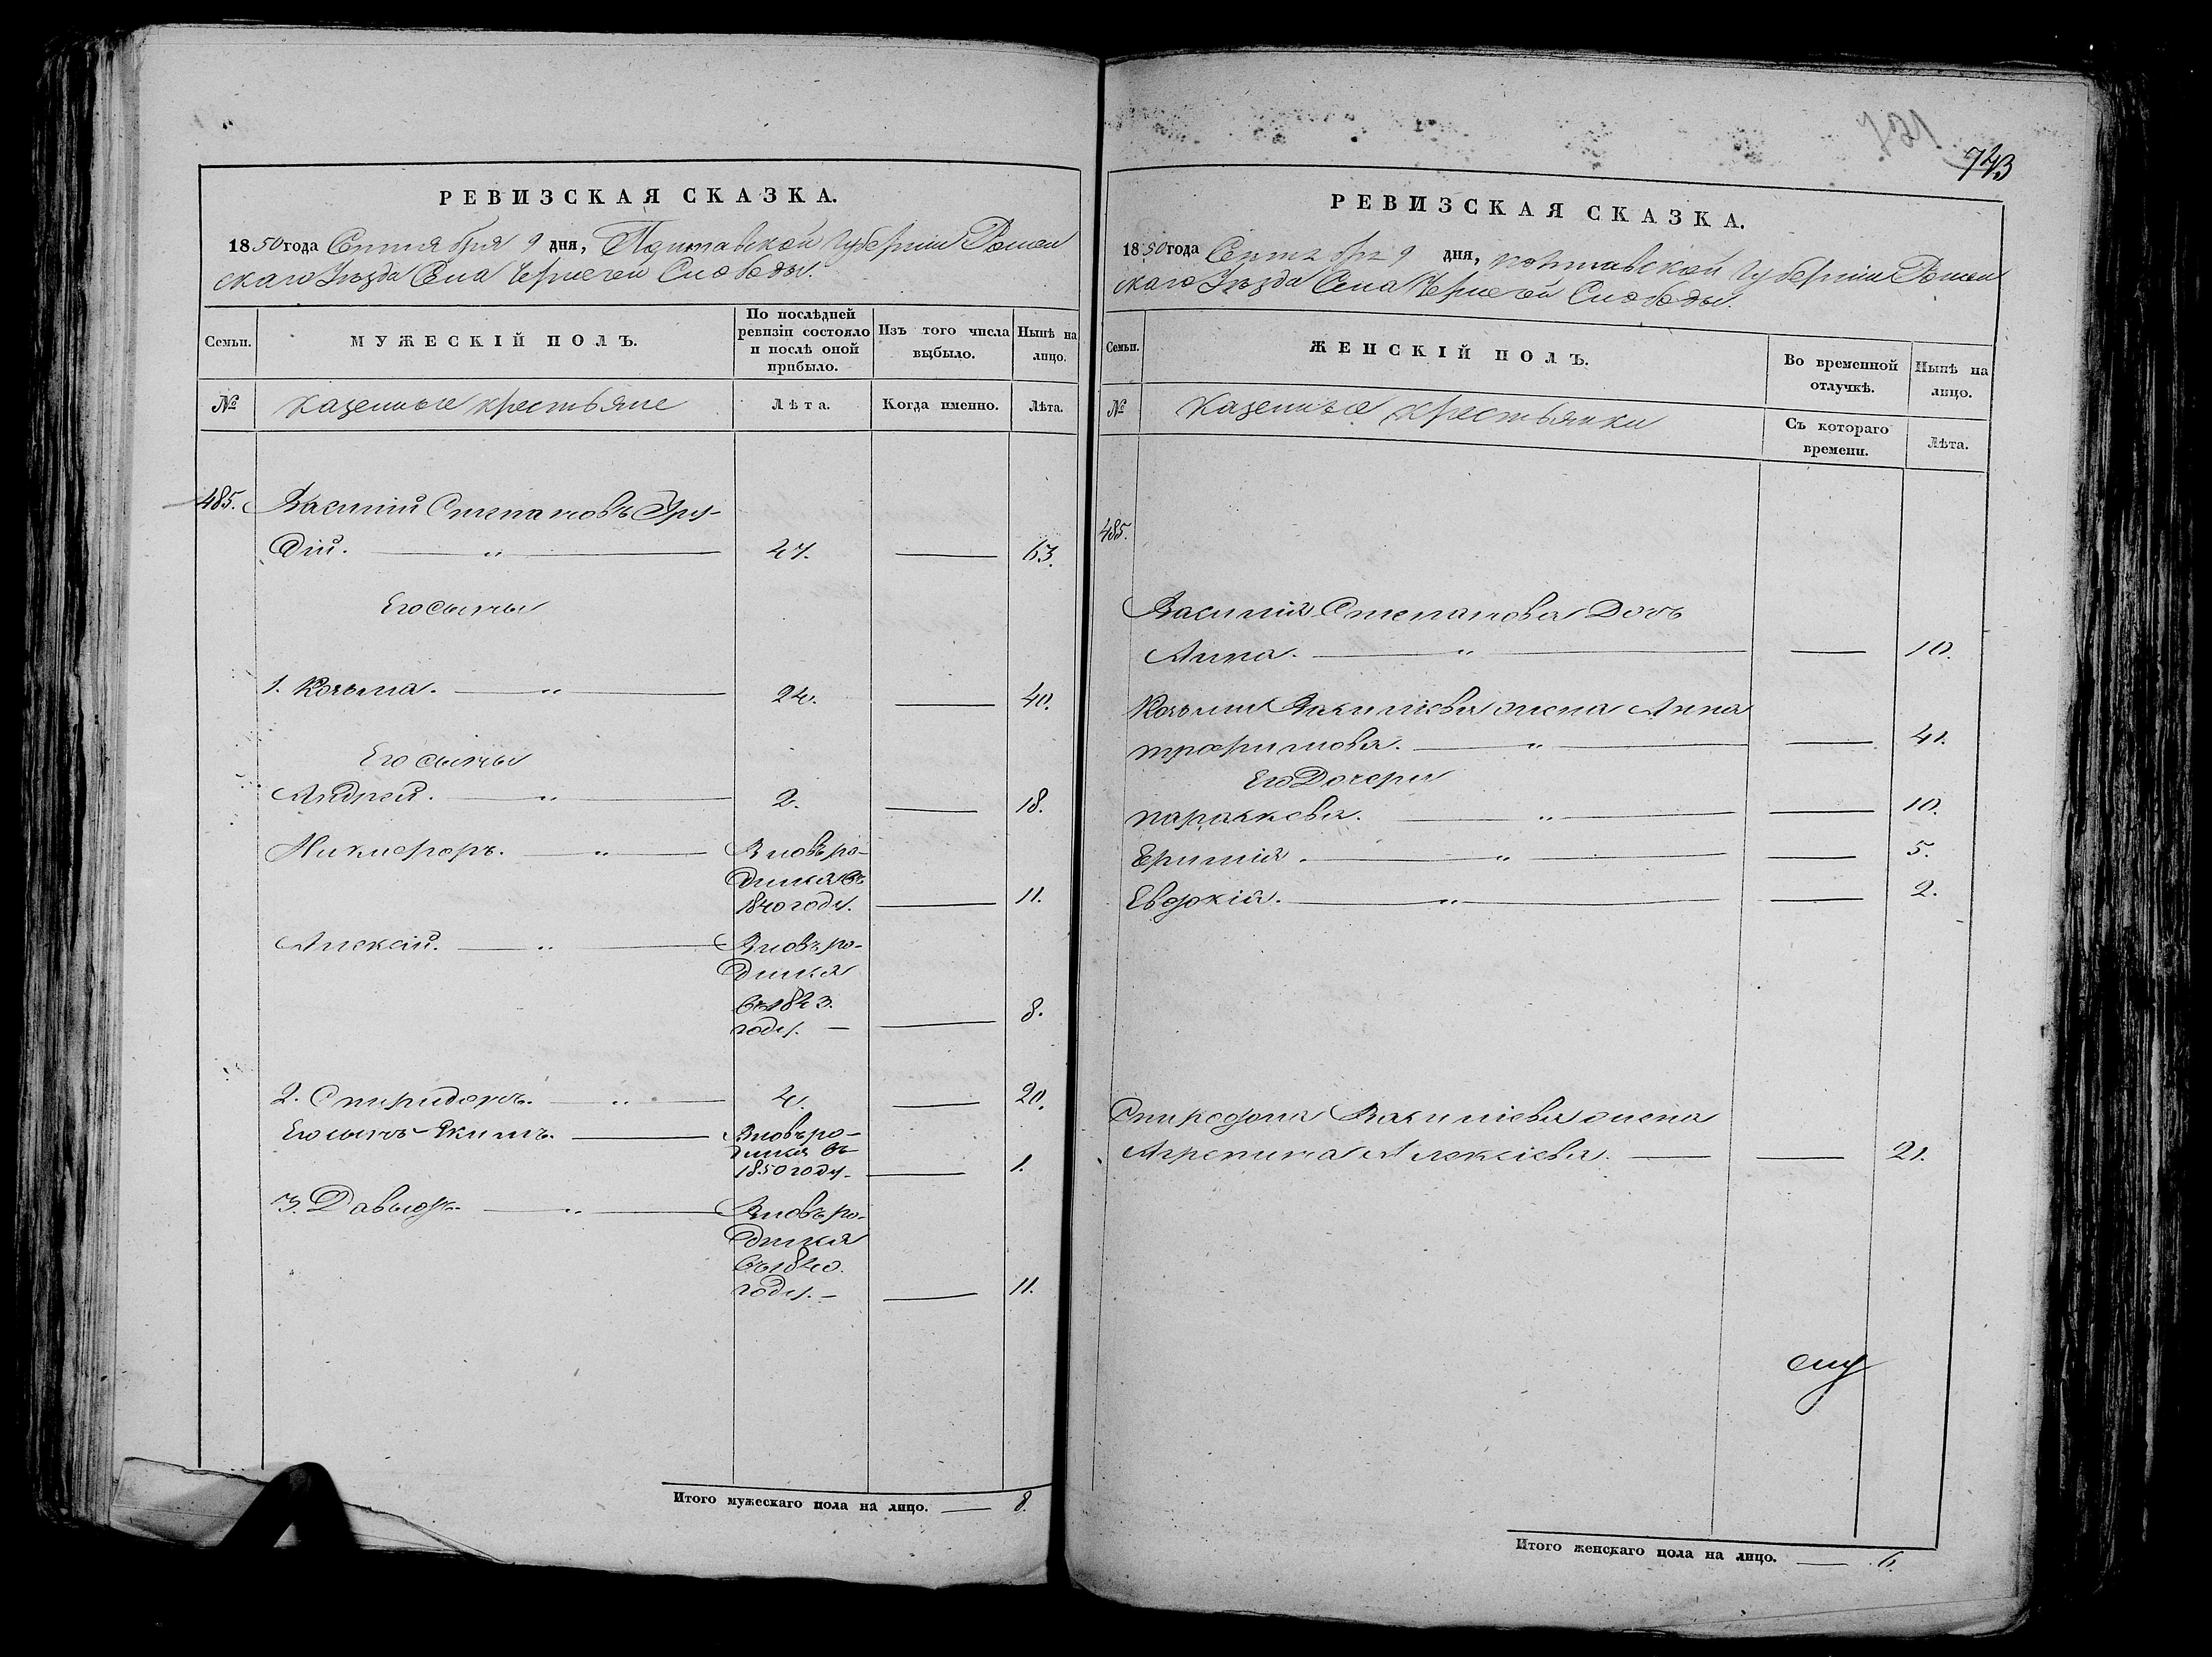 РЕВИЗСКАЯ СКАЗКА.
1850 года Сентября 9 дня, Полтавской Губернии Ромен
скаго Уѣзда Села Чернечей Слободы.
Семьи.
МУЖЕСКІЙ ПОЛЪ.
По послѣдней ревизіи состояло и послѣ оной прибыло.
Изъ того числа выбыло.
Нынѣ на лицо.
№
Казенные крестьяне
Лѣта.
Когда именно.
Лѣта.
485. Василій Степановъ
дій. — „ — 47. — 63.
Его сыны
1. Козьма. — „ — 24. — 40.
Его сыны
Андрей. — „ — 2. — 18.
Никифоръ. — „ — Вновь ро-
дился въ
1840 году. — 11.
Алексій. — „ — Вновь ро-
дился
въ 1843.
году. — — 8.
2. Спиридонъ. — „ — 4. — 20.
Его сынъ Екимъ. — Вновь ро-
дился въ
1850 году. — 1.
3. Давыдъ. — „ — Вновь ро-
дился
въ 1840.
году. — — 11.
Итого мужескаго пола на лицо. — 8.
743
РЕВИЗСКАЯ СКАЗКА.
1850 года Сентября 9 дня, Полтавской Губерніи Ромен
скаго Уѣзда Села Чернечей Слободы.
Семьи.
ЖЕНСКІЙ ПОЛЪ.
Во временной отлучкѣ.
Нынѣ на лицо.
№
Казенные крестьянки
Съ котораго времени.
Лѣта.
485.
Василія Степанова Дочь
Анна. — „ — — 10.
Козьмы Василіева жена Анна
Трофимова. — „ — — 41.
Его Дочери
Параскева. — „ — — 10.
Ефимія. — „ — — 5.
Евдокія. — „ — — 2.
Спиридона Василіева жена
Агрепина Алексіева. — — 21.
Итого женскаго пола на лицо. — 6.